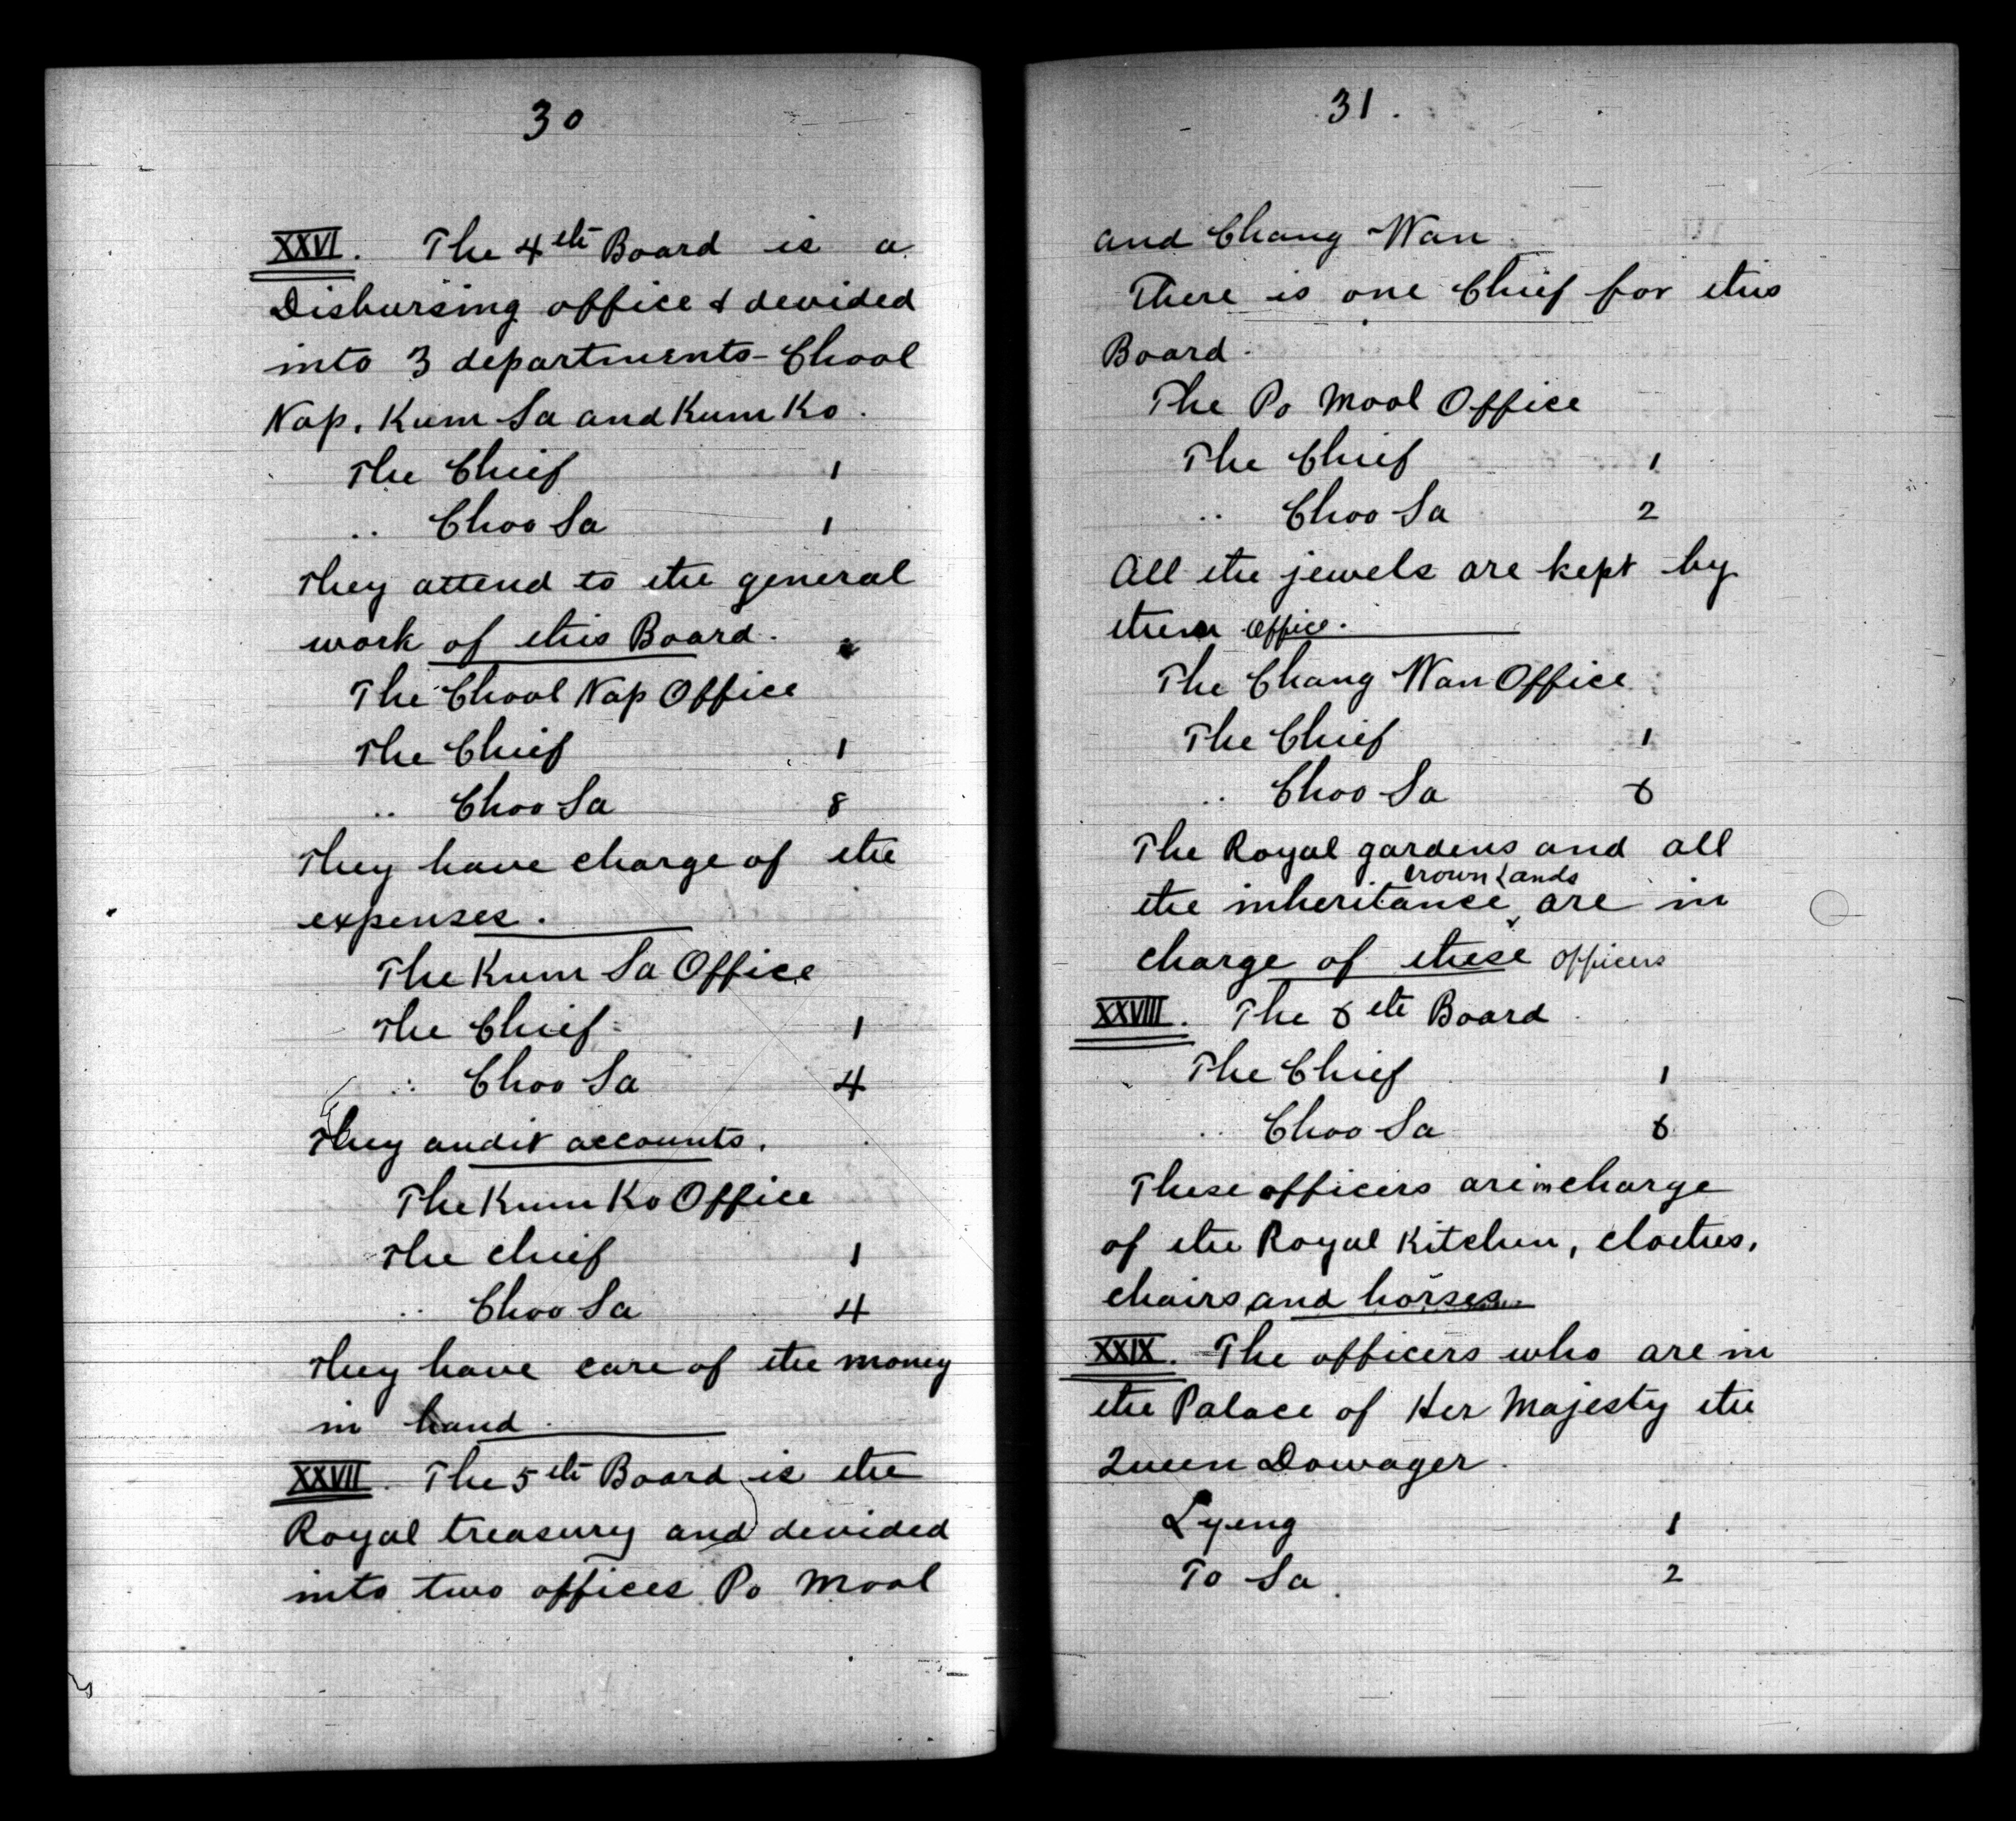 30
XXVI. The 4th Board is a
Disbursing office & devided
into 3 departments - Chool
Nap, Kum Sa and Kum Ko.
The Chief 1
.. Choo Sa 1
They attend to the general
work of this Board.
The Chool Nap Office
The Chief 1
.. Choo Sa 8
They have charge of the
expenses.
The Kum Sa Office
The Chief 1
.. Choo Sa 4
They audit accounts.
The Kum Ko Office
The chief 1
.. Choo Sa 4
They have care of the money
in hand.
XXVII. The 5th Board is the
Royal treasury and devided
into two offices Po Mool
31.
and Chang Wan
There is one Chief for this
Board.
The Po Mool Office
The Chief 1
.. Choo Sa 2
All the jewels are kept by
them office.
The Chang Wan Office
The Chief 1
.. Choo Sa 6
The Royal gardens and all
crown lands
the inheritance are in
charge of these officers
XXVIII. The 6th Board
The Chief 1
.. Choo Sa 6
These officers are in charge
of the Royal Kitchen, clothes,
chairs and horses.
XXIX. The officers who are in
the Palace of Her Majesty the
Queen Dowager.
Lyeng 1
To Sa 2